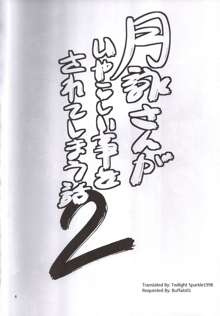 月詠さんが
いやらしい事を
されてしまう話
2
Translated by: Twilight Sparkle1998
Requested By: Buffalo01